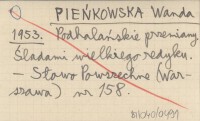 PIEŃKOWSKA Wanda
1953. Podhalańskie przemiany
Śladami wielkiego redyku.
- Słowo Powszechne (War-
szawa) nr 158.